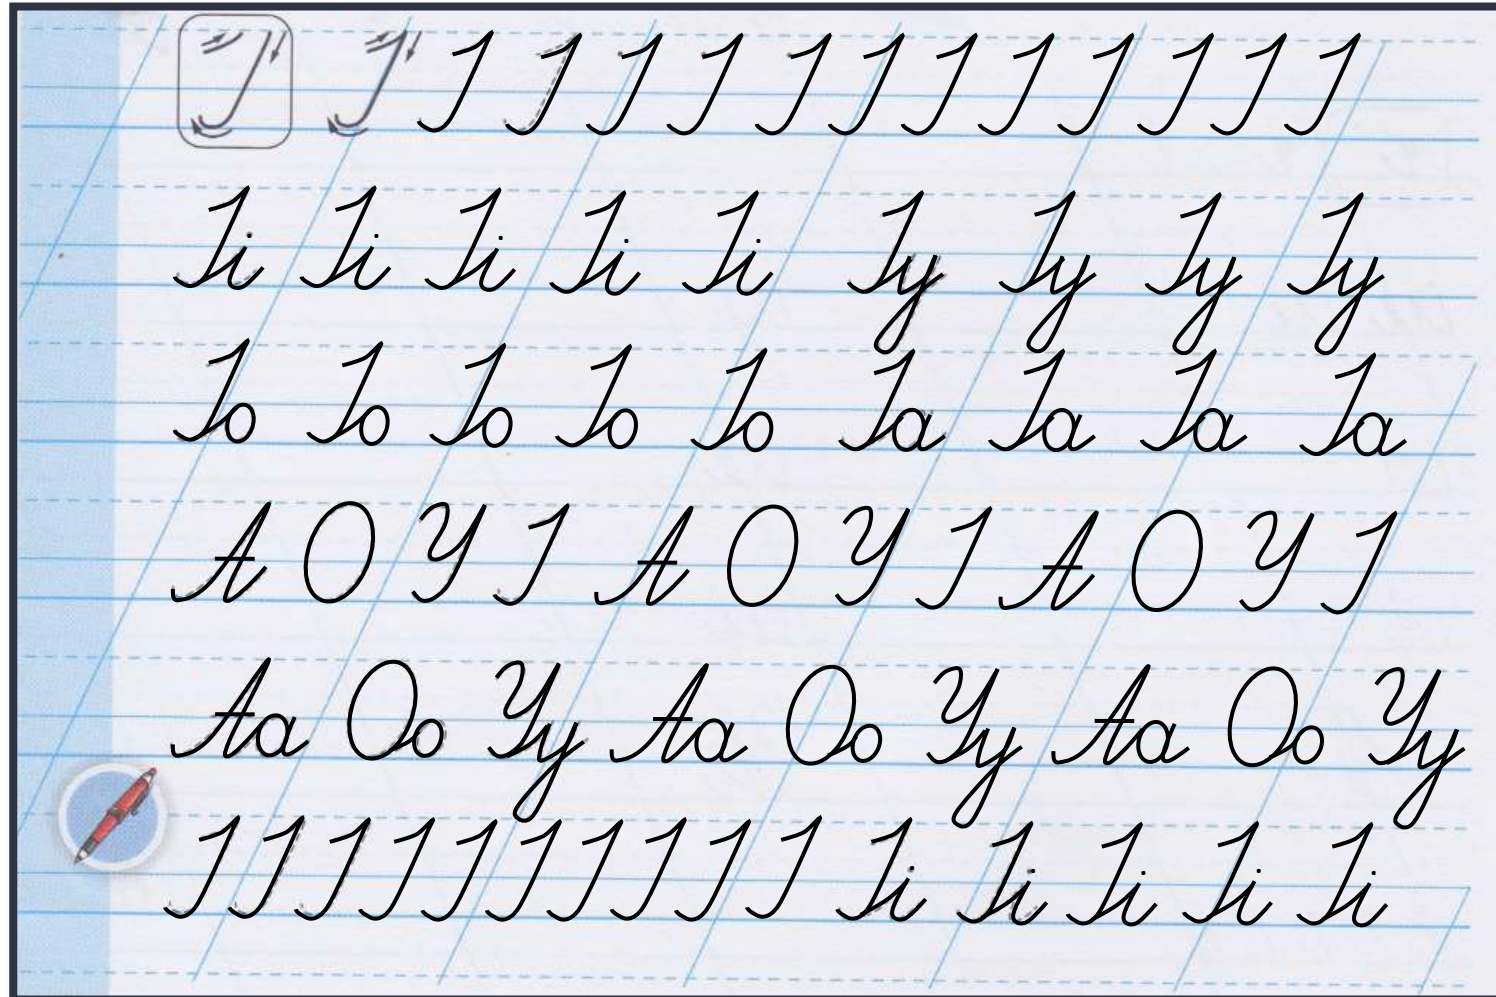 І І І І І І І І І І І І І І
Іі Іі Іі Іі Іі Іу Іу Іу Іу
Іо Іо Іо Іо Іо Іа Іа Іа Іа
А О У І А О У І А О У І
Аа Оо Уу Аа Оо Уу Аа Оо Уу
І І І І І І І І І І Іі Іі Іі Іі Іі